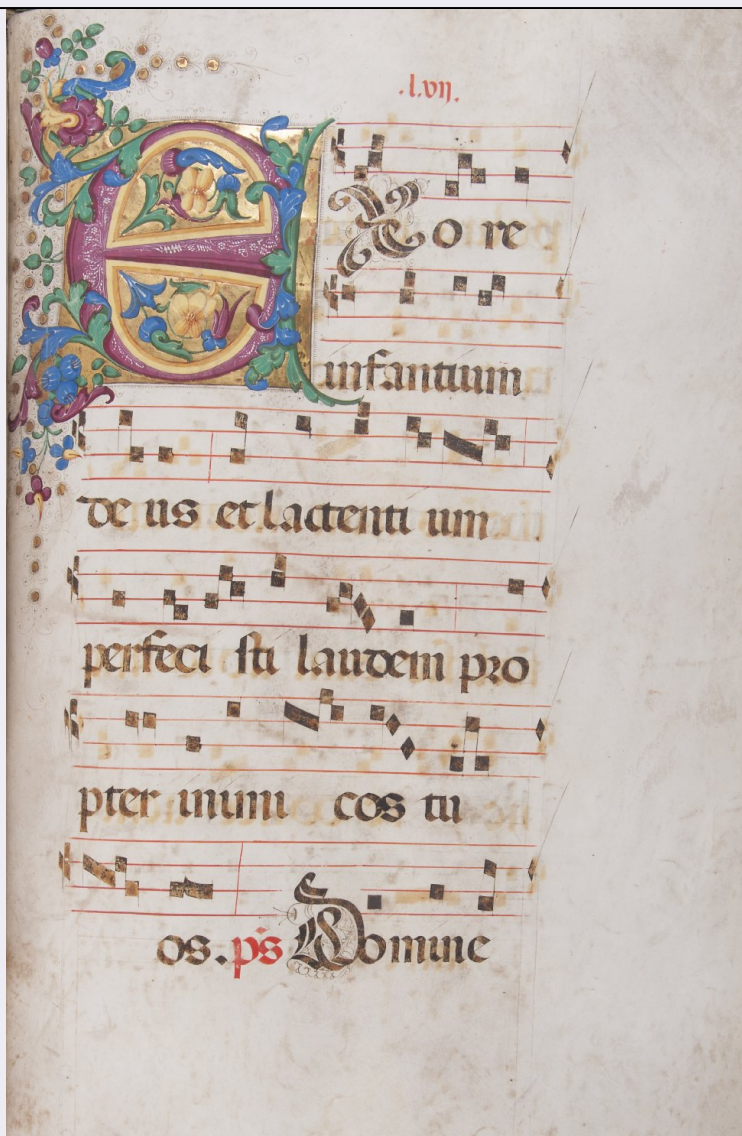 .l.vij.
EX o re
infantium
de us et lactenti um
perfeci sti laudem pro
pter inimi cos tu
os. ps Domine